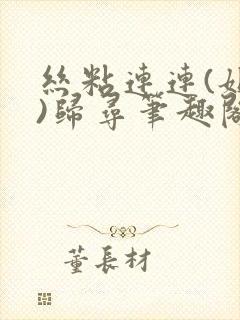 絲粘連連(
)歸尋筆趣閣
董長材